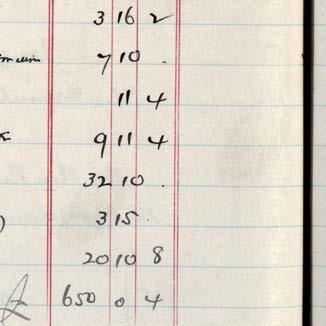 3 16 2
7 10 .
11 4
9 11 4
32 10 .
3 15 .
) 20 10 8
650 0 4